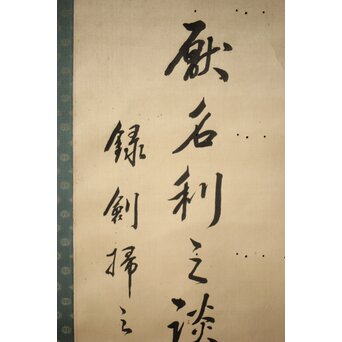 厭名利之談
録劍掃之